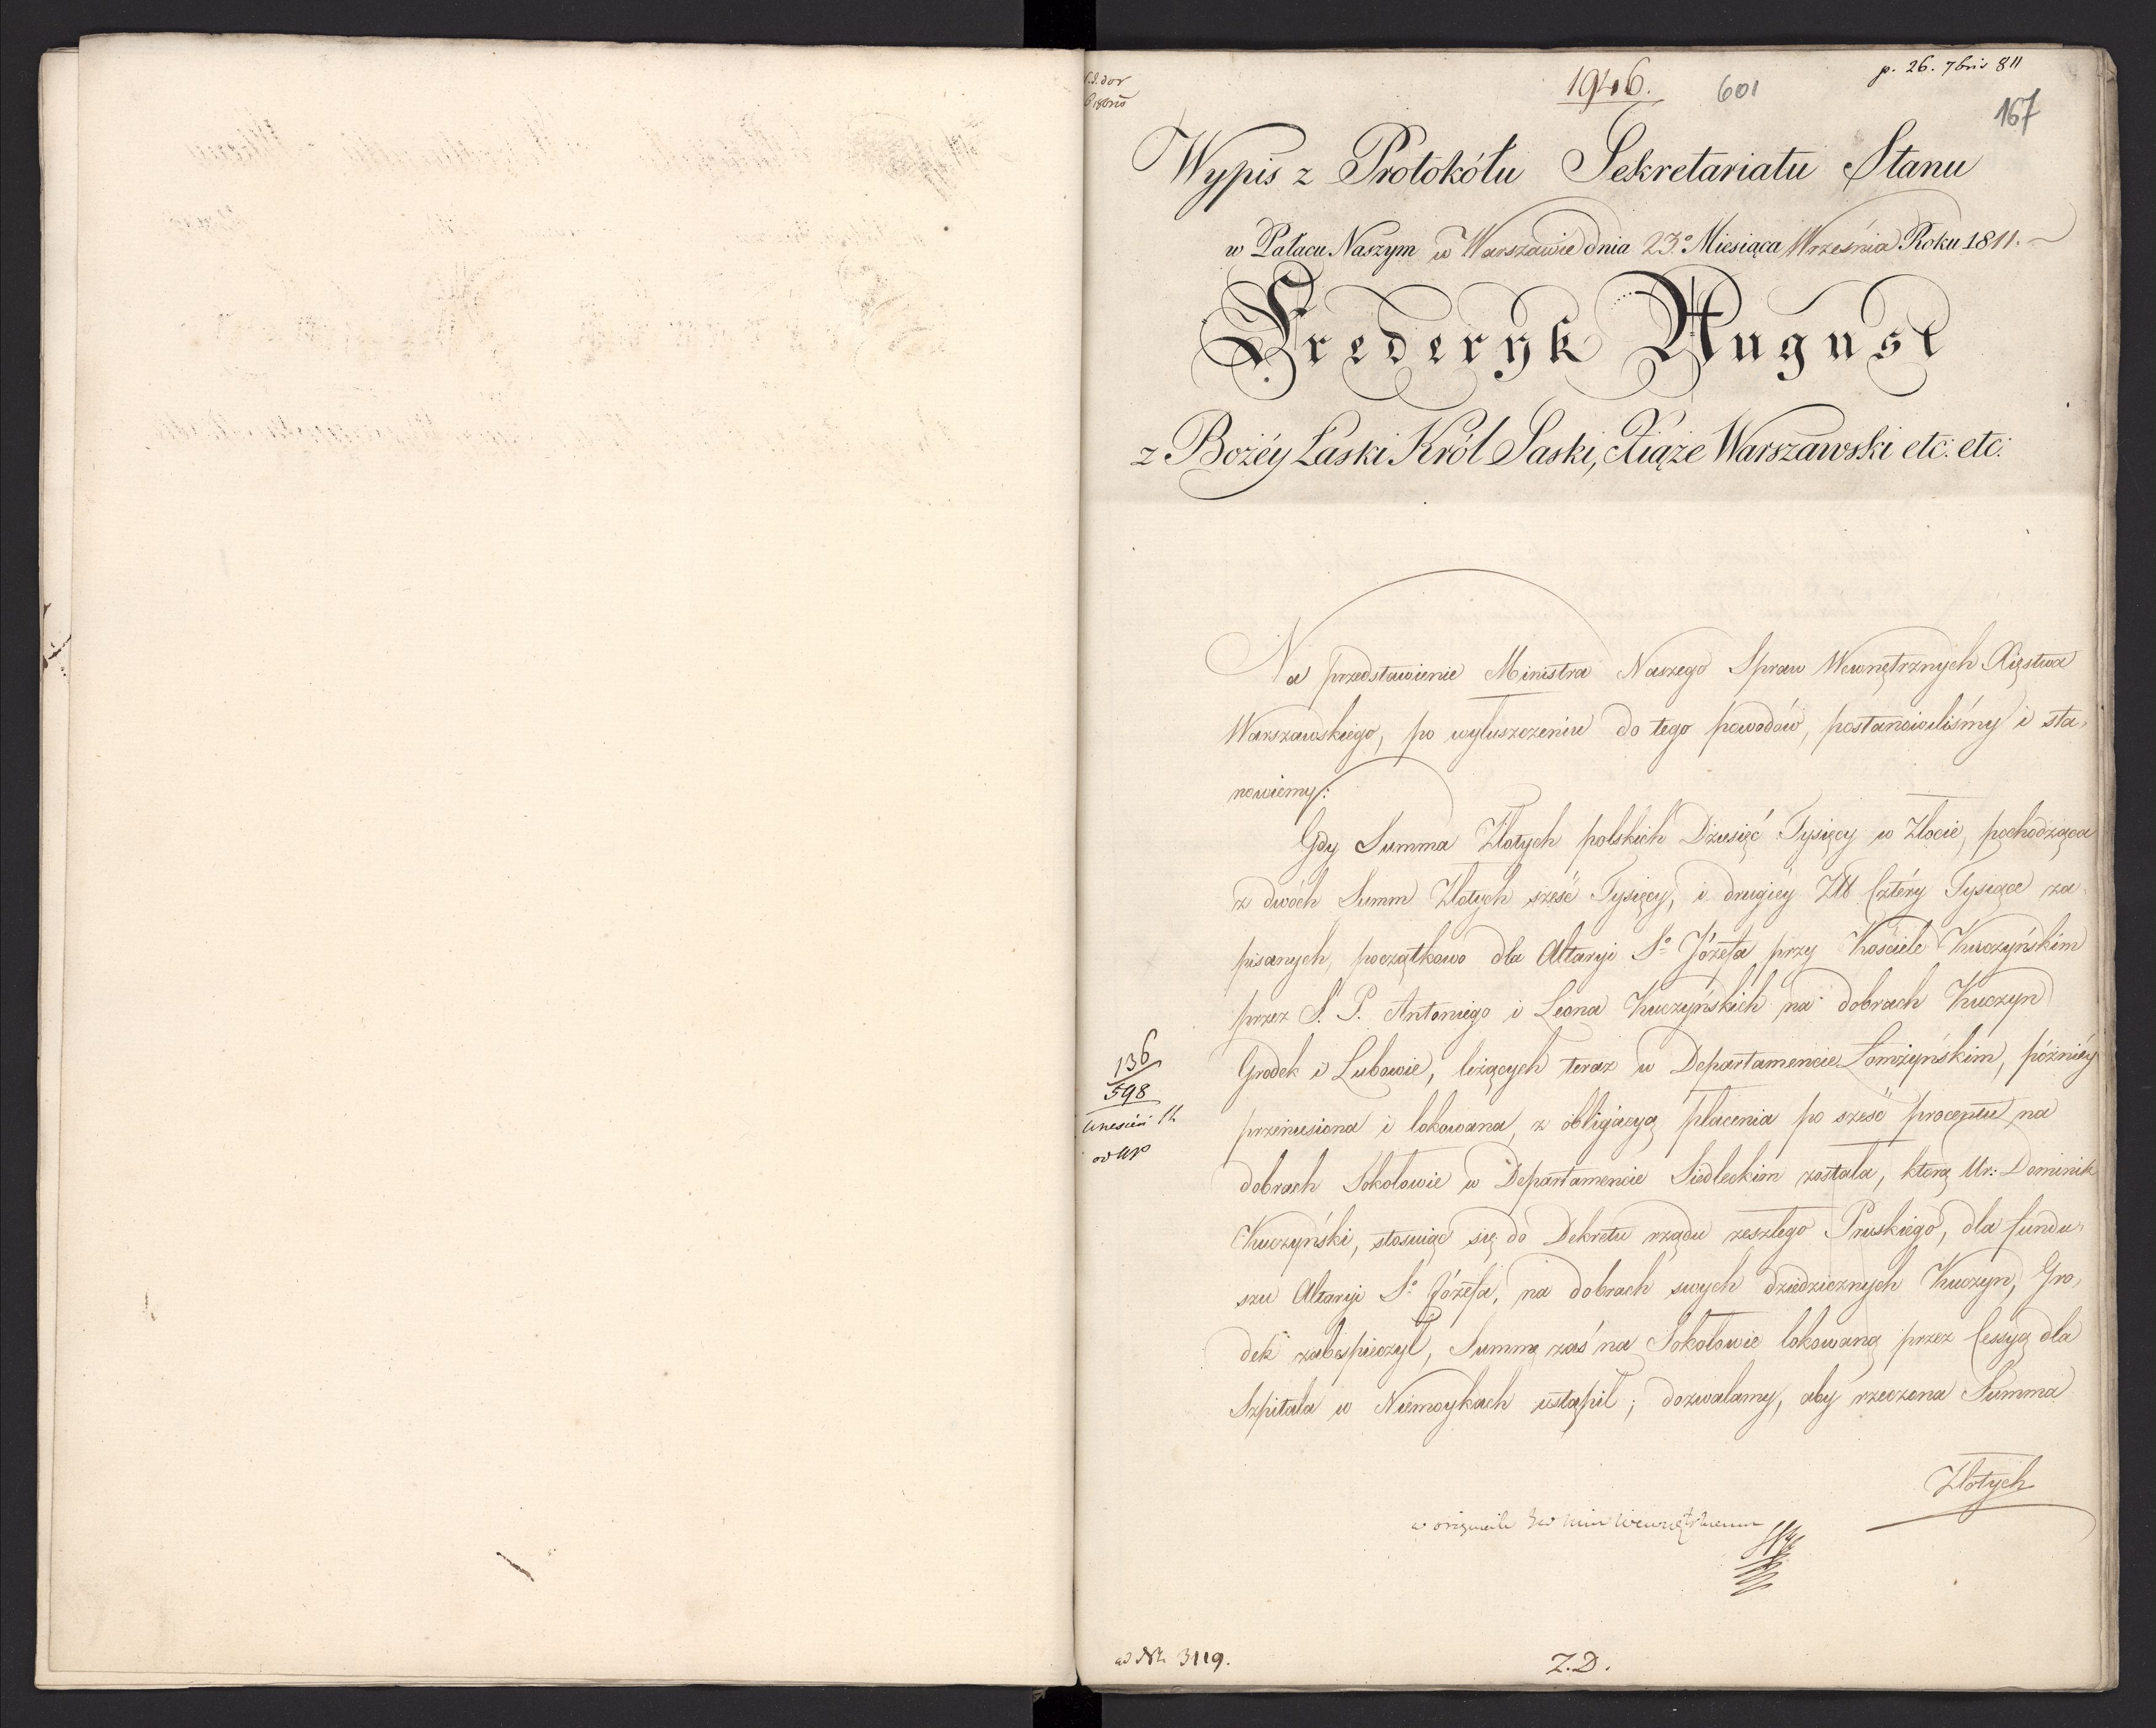 p. 26. 7bris 811
1946. 601
167
Wypis z Protokółu Sekretariatu Stanu
w Pałacu Naszym w Warszawie dnia 23º Miesiąca Września Roku 1811.
Frederyk August
z Bożéy Łaski Król Saski, Xiąże Warszawski etc: etc:
Na przedstawienie Ministra Naszego Spraw Wewnętrznych Xięstwa
Warszawskiego, po wyłuszczeniu do tego powodów, postanowiliśmy i sta-
nowiemy:
Gdy Summa Złotych polskich Dziesięć Tysięcy w Złocie, pochodząca
z dwóch Summ Złotych sześć Tysięcy, i drugiéy Zł Cztéry Tysiące za-
pisanych, początkowo dla Altaryi Sº Józefa przy Kościele Kuczyńskim
przez S. P. Antoniego i Leona Kuczyńskich na dobrach Kuczyn
Grodek i Lubowie, leżących teraz w Departamencie Łomżyńskim, późniéy
przeniesiona i lokowana, z obligacyą płacenia po sześć procentu na
dobrach Sokołowie w Departamencie Siedleckim została, którą Ur: Dominik
Kuczyński, stosuiąc się do Dekretu rządu zeszłego Pruskiego, dla fundu-
szu Altaryi Sº Józefa, na dobrach swych dziedzicznych Kuczyn, Gro-
dek zabespieczył, Summę zaś na Sokołowie lokowaną przez Cessyą dla
Szpitala w Niemoykach ustąpił; dozwalamy, aby rzeczona Summa
Złotych
136
598
w originale
ad Nr. 3119.
Z.D.